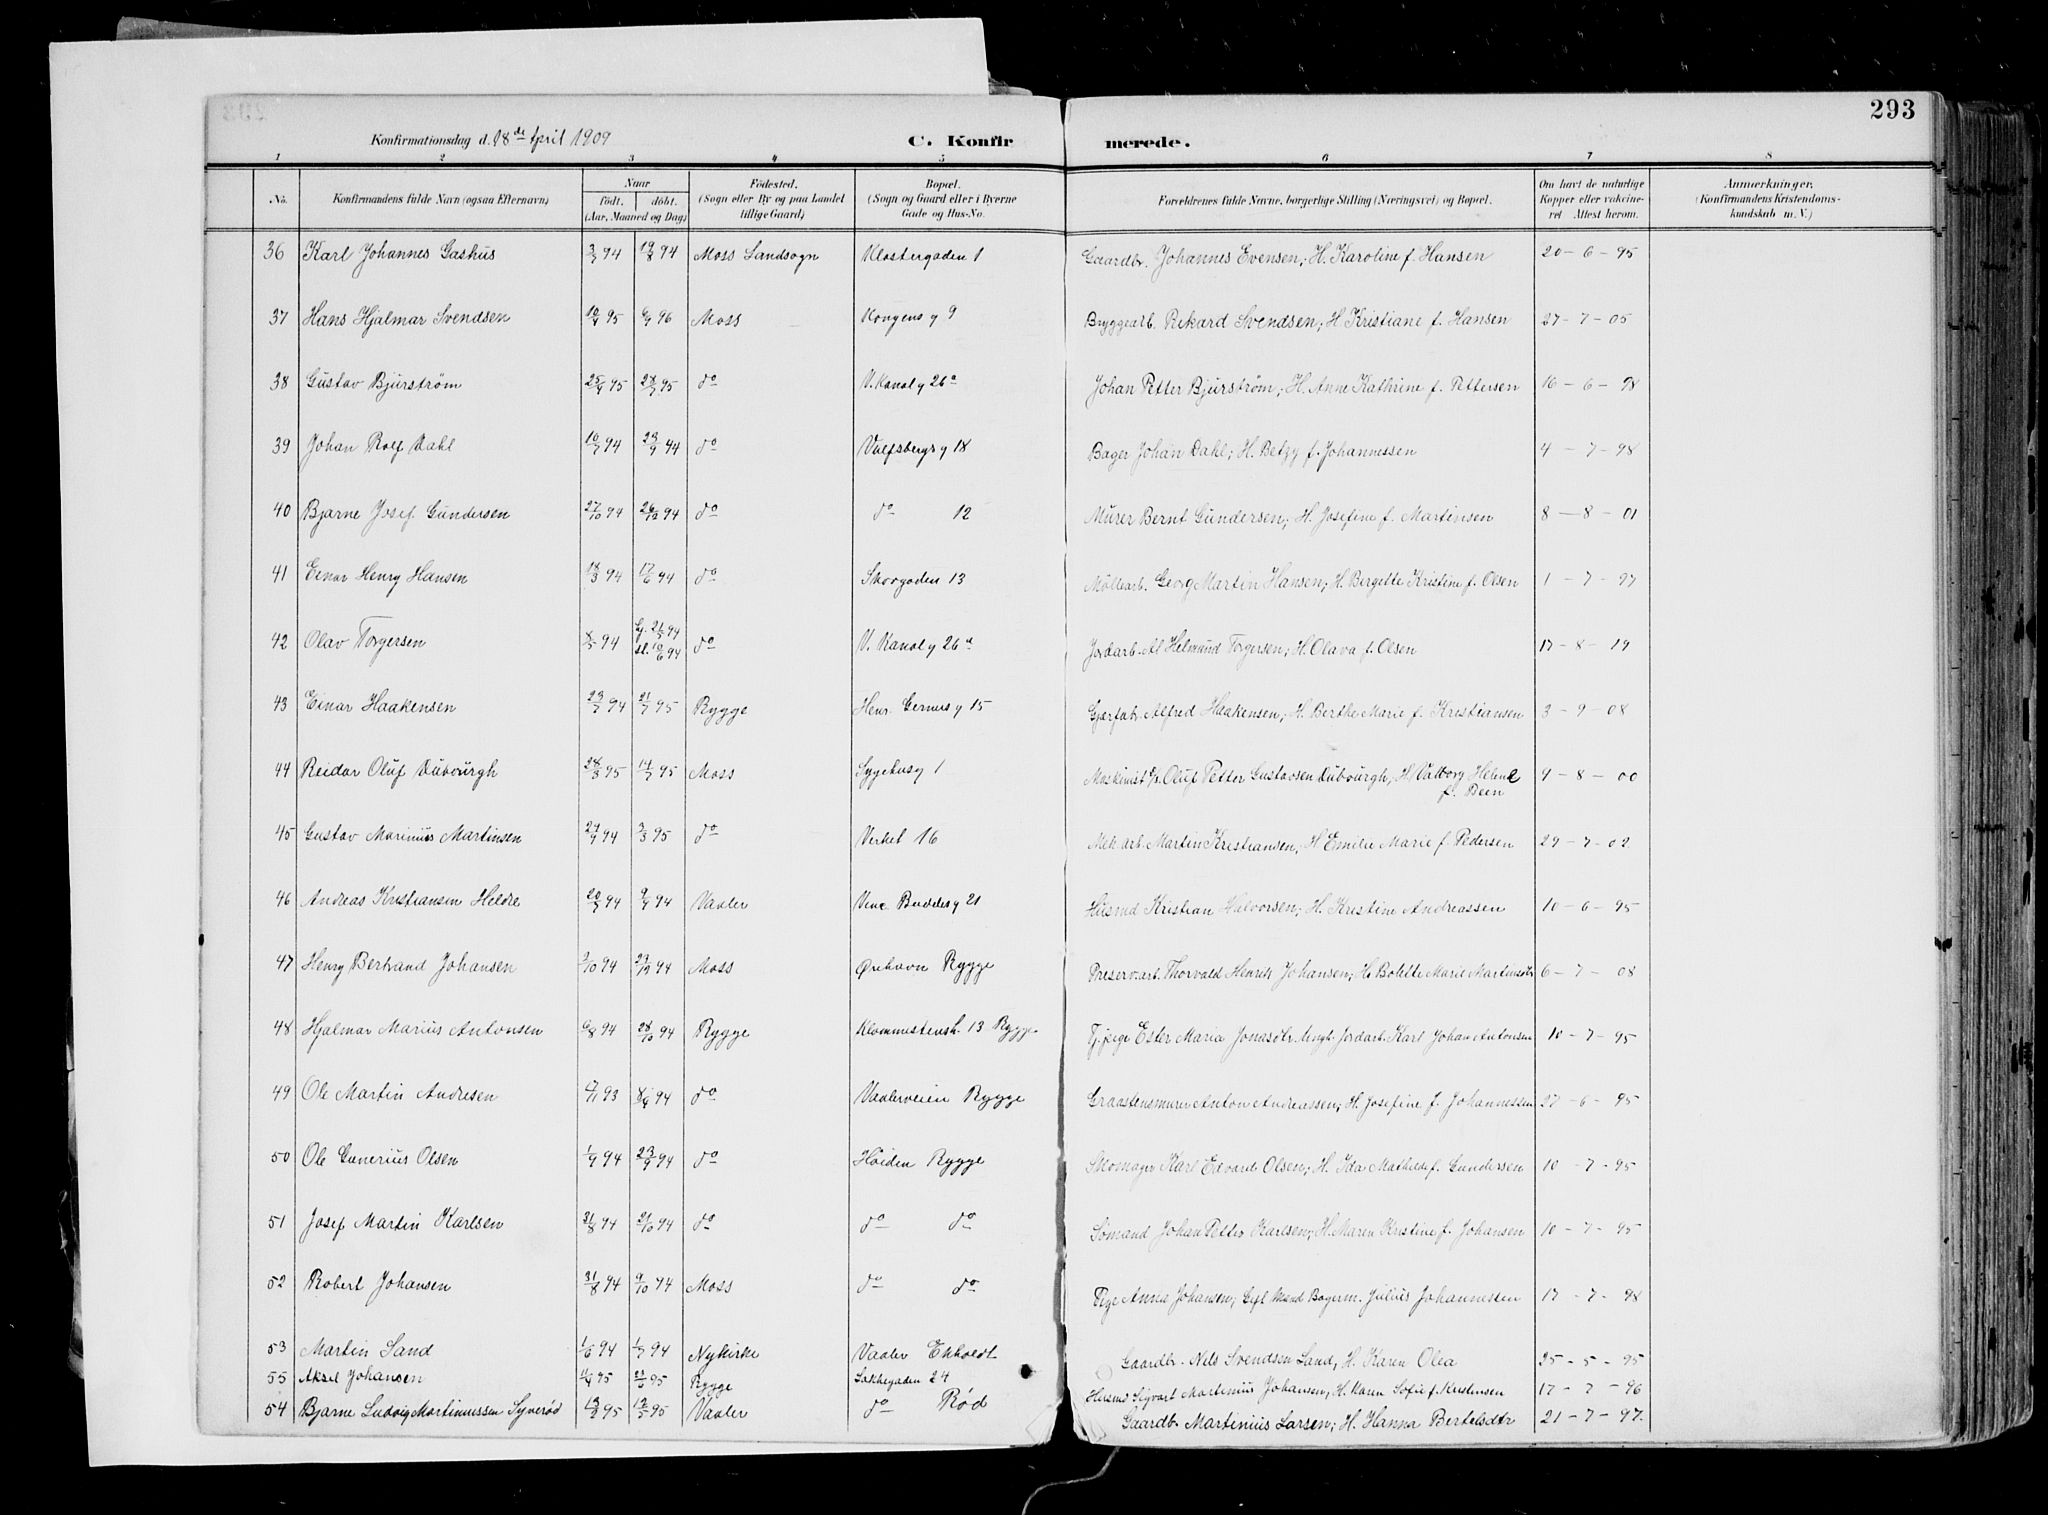 293
Konfirmationsdag d. 18de April 1909 C. Konfirmerede.
1 2 3 4 5 6 7 8
No. Konfirmandens fulde Navn (ogsaa Efternavn) Naar født. døbt. (Aar, Maaned og Dag) Fødested. (Sogn eller By og paa Landet tillige Gaard) Bopæl. (Sogn og Gaard eller i Byerne Gade og Hus-No. Forældrenes fulde Navne, borgerlige Stilling (Næringsvei) og Bopæl. Om havt de naturlige Kopper eller vakcineret. Attest herom. Anmærkninger. (Konfirmandens Kristendomskundskab m. V.)
36 Karl Johannes Gashus 3/7 94 19/8 94 Moss Landsogn Klostergaden 1 Gaardbr. Johannes Evensen; H. Karoline f. Hansen 20-6-95
37 Hans Hjalmar Svendsen 95 96 Moss Kongens g 9 Bryggearb. Rikard Svendsen; H. Kristiane f. Hansen 27-7-05
38 Gustav Bjurström 95 95 do V. Kanalg 26a Johan Petter Bjurström; H. Anne Kathrine f. Pettersen 16-6-98
39 Johan Rolf Dahl 94 94 do Vulfsbergs g 18 Bager Johan Dahl; H. Betzy f. Johannessen 4-7-98
40 Bjarne Josef Gundersen 27/10 94 26/12 94 do do 12 Murer Bernt Gundersen; H. Josefine f. Martinsen 8-8-01
41 Einar Henry Hansen 18/3 94 17/6 94 do Skovgaden 13 Möllearb. Georg Martin Hansen; H. Birgitte Kristine f. Olsen 1-7-97
42 Olav Torgersen 94 94 94 do V. Kanalg 26a Jordarb. Helmund Torgersen; H. Olava f. Olsen 17-8-19
43 Einar Haakensen 23/7 94 21/7 95 Rygge Henr. Gerners g 15 Alfred Haakensen; H. Berthe Marie f. Kristiansen 3-9-08
44 Reidar Oluf Dubourgh 28/3 95 14/7 95 Moss Sygehusg 1 Maskinist Oluf Petter Gustavsen Dubourgh; H. Valborg Helene f. Been 9-8-00
45 Gustav Marinius Martinsen 94 3/3 95 do Verket 16 Mek arb. Martin Kristiansen; H Emilie Marie f. Pedersen 29-7-02
46 Andreas Kristiansen Heldre 94 94 Vaaler Vinc. Buddes g 21 Husmd Kristian Halvorsen; H. Kristine Andreassen 10-6-95
47 Henry Bertrand Johansen 94 23/12 94 Moss Ørehavn Rygge Preserv.arb. Thorvald Henrik Johansen; H. Bolette Marie Martinsdtr 6-7-08
48 Hjalmar Marius Antonsen 6/8 94 28/10 94 Rygge 13 Rygge Tj. pige Ester Maria Jonasdtr Ungk. Jordarb. Karl Johan Antonsen 10-7-95
49 Ole Martin Andresen 93 94 do Vaalerveien Rygge Graastensmurer Anton Andreassen; H. Josefine f. Johannessen 27-6-95
50 Ole Gunerius Olsen 1/9 94 23/9 94 do Høiden Rygge Skomager Karl Edvard Olsen; H. Ida Mathilde f. Gundersen 10-7-95
51 Josef Martin Karlsen 31/8 94 21/10 94 do do do Sømand Johan Petter Karlsen; H. Maren Kristine f. Johansen 10-7-95
52 Robert Johansen 31/8 94 9/10 94 Moss do do Pige Anna Johansen; Gift Mand Bagerm. Julius Johannessen 17-7-98
53 Martin Sand 1/6 94 1/7 94 Nykirke Vaaler Ekholdt Gaardbr. Nils Svendsen Sand, H. Karen Olea 25-5-95
55 Aksel Johansen 95 95 Rygge Løkkegaden 24 Husmd Sigvart Martinius Johansen, H. Karen Sofie f. Kristensen 17-7-96
54 Bjarne Ludvig Martinussen Syverød 95 95 Vaaler do Rød Gaardbr Martinius Larsen; H. Hanna Bertelsdtr 21-7-97.